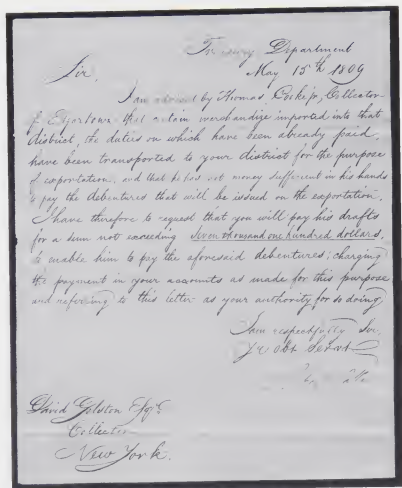 Treasury Department
May 15th 1809
Sir.
I am advised by Thomas Cooke jr, Collector
of Edgartown that certain merchandize imported into that
district the duties on which have been already paid,
have been transported to your district for the purpose
of exportation, and that he has not money sufficient in his hands
to pay the debentures that will be issued on the exportation.
I have therefore to request that you will pay his drafts
for a sum not exceeding Seven thousand one hundred dollars,
to enable him to pay the aforesaid debentures; charging
the payment in your accounts as made for this purpose
and referring to this letter as your authority for so doing
I am respectfully Sir
Yr obt Servt
David Gelston Esqr
Collector
New York.